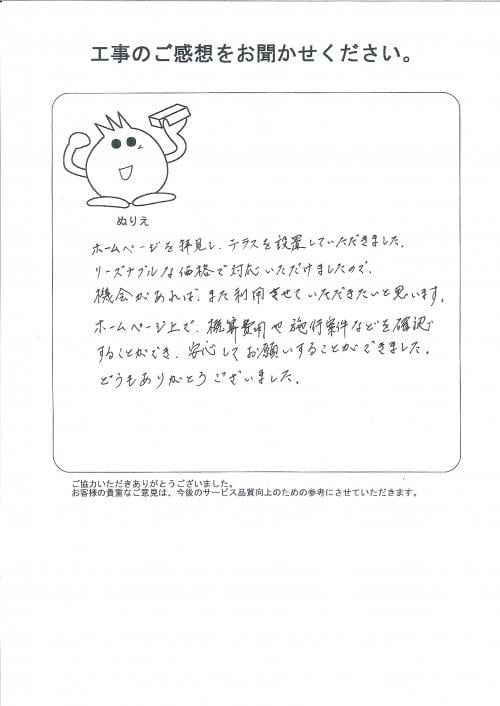 工事のご感想をお聞かせください。
ぬりえ
ホームページを拝見し、テラスを設置していただきました。
リーズナブルな価格で対応いただけましたので、
機会があれば、また利用させていただきたいと思います。
ホームページ上で、概算費用や施行案件などを確認
することができ、安心してお願いすることができました。
どうもありがとうございました。
ご協力いただきありがとうございました。
お客様の貴重なご意見は、今後のサービス品質向上のための参考にさせていただきます。